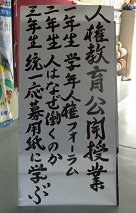 人権教育公開授業
一年生 学年人権フォーラム
二年生 人はなぜ働くのか
三年生 統一応募用紙に学ぶ